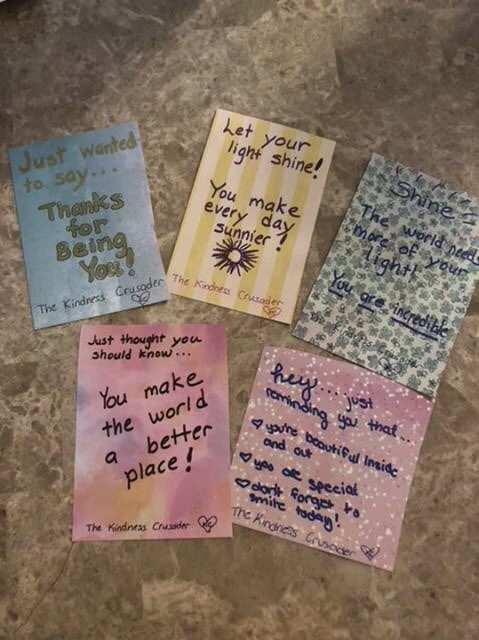 Just wanted
to say...
Thanks
for
Being
You!
The Kindness Crusader
Let your
light shine!
You make
every day
sunnier!
The Kindness Crusader
Shine
The world needs
more of your
light!
You are incredible
The Kindness
Just thought you
should know...
You make
the world
a better
place!
The Kindness Crusader
hey... just
reminding you that...
you're beautiful inside
and out
you are special
don't forget to
smile today!
The Kindness Crusader